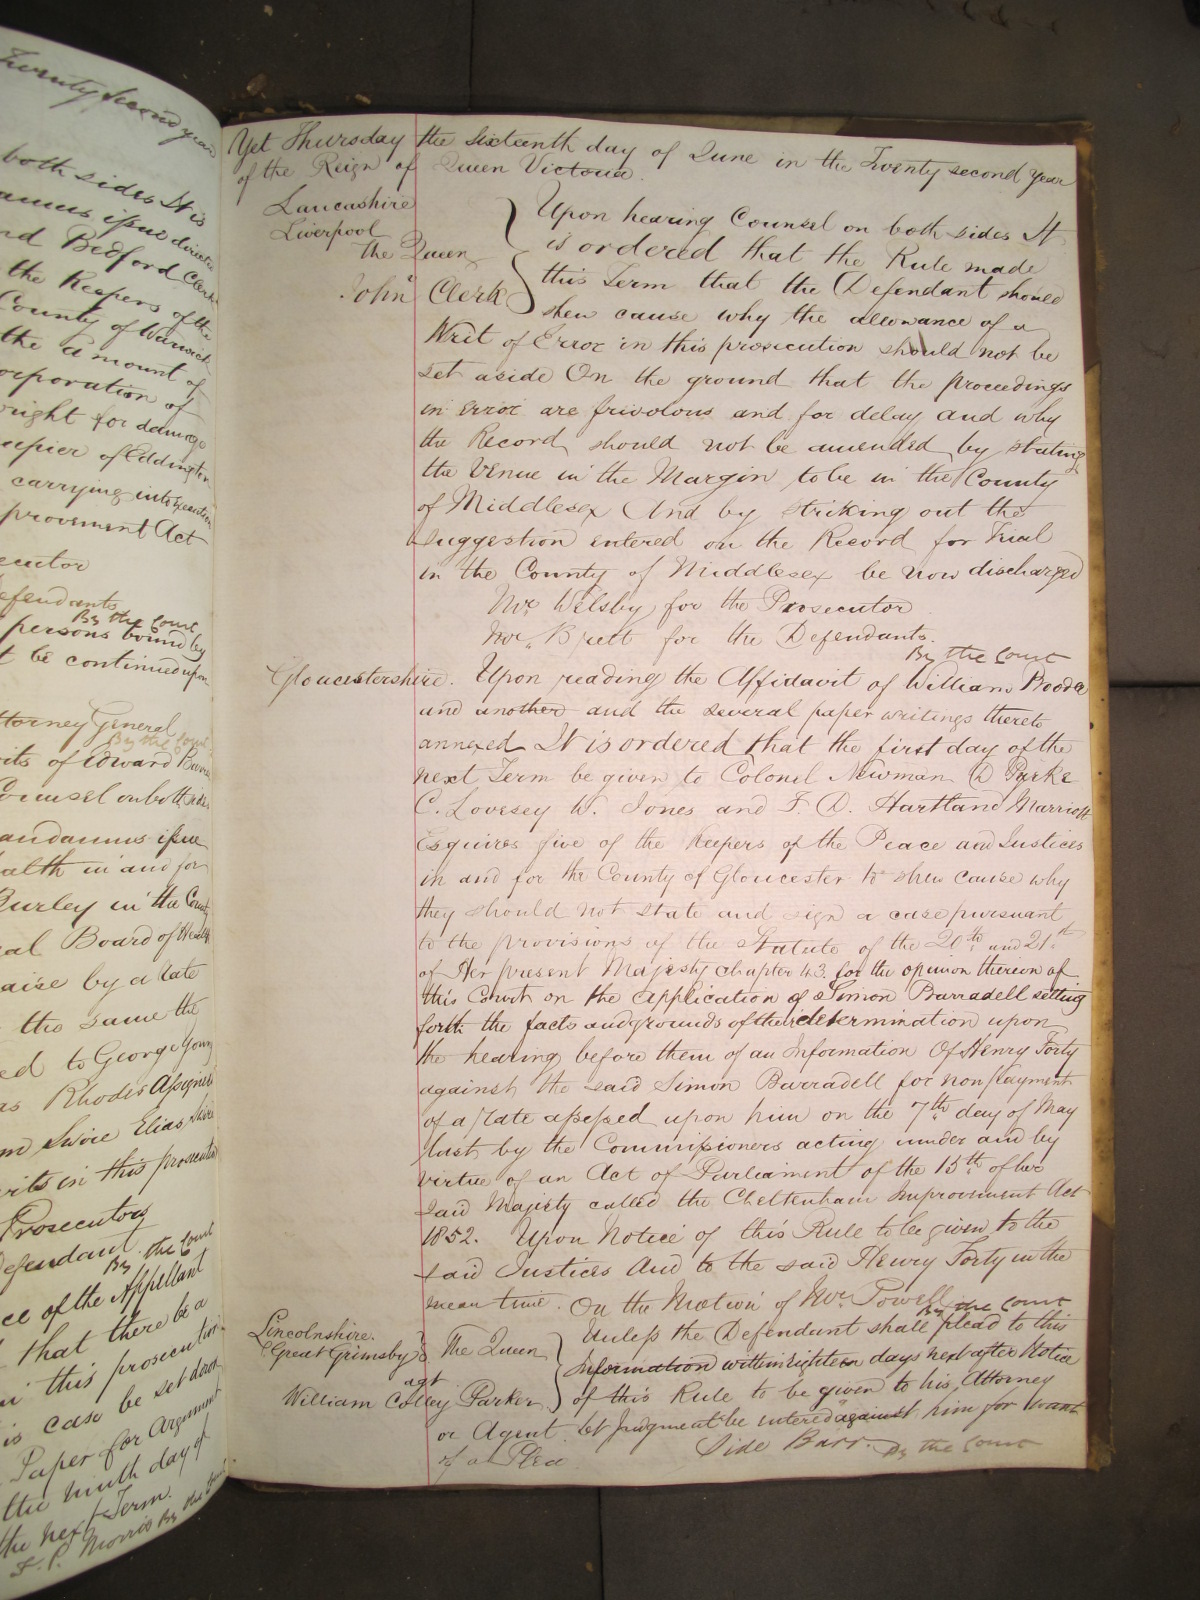 Twenty second year
both sides It is
amus issue directed
nd Bedford Clerk
the Keepers of the
County of Warwick
the amount of
orporation of
right for damage
upier of Eddington
carrying into execution
provement Act
ecutor
efendants
By the Court
persons bound by
t be continued upon
ttorney General
By the Court
its of Edward
Counsel on both sides
andamus issue
alth in and for
Burley in the County
al Board of Health
aise by a late
the same the
ed to George Young
as Rhodes Assignees
m Swire Elias Swire
rits in this prosecution
Prosecutors
efendant
By the Court
ce of the Appellant
that there be a
in this prosecution
is case be set down
Paper for Argument
the ninth day of
the next Term.
F. P. Morris By the Court
Yet Thursday the Sixteenth day of June in the Twenty second Year
of the Reign of Queen Victoria.
Lancashire
Liverpool
the Queen
John Clerk
Upon hearing Counsel on both sides It
is ordered that the Rule made
this Term that the Defendant should
shew cause why the allowance of a
Writ of Error in this prosecution should not be
set aside On the ground that the proceedings
in error are frivolous and for delay and why
the Record should not be amended by stating
the Venue in the Margin to be in the County
of Middlesex And by striking out the
suggestion entered on the Record for Trial
in the County of Middlesex be now discharged
Mr. Welsby for the Prosecutor
Mr. Brett for the Defendants.
By the Court
Gloucestershire. Upon reading the Affidavit of William Boodle
and another and the several paper writings thereto
annexed It is ordered that the first day of the
next Term be given to Colonel Newman D Parke
C. Lovesey W. Jones and F. D. Hartland Marriott
Esquires five of the Keepers of the Peace and Justices
in and for the County of Gloucester to shew cause why
they should not state and sign a case pursuant
to the provisions of the Statute of the 20th and 21st
of Her present Majesty chapter 43 for the opinion thereon of
this Court on the application of Simon Barradell setting
forth the facts and grounds of their determination upon
the hearing before them of an Information Of Henry Forty
against the said Simon Barradell for nonpayment
of a rate assessed upon him on the 7th day of May
last by the Commissioners acting under and by
virtue of an Act of Parliament of the 15th of her
said Majesty called the Cheltenham Improvement Act
1852. Upon Notice of this Rule to be given to the
said Justices And to the said Henry Forty in the
mean time. On the Motion of Mr. Powell
By the Court
Lincolnshire.
Great Grimsby
The Queen
agt
William Colley Parker
Unless the Defendant shall plead to this
Information within Eighteen days next after Notice
of this Rule to be given to his Attorney
or Agent let Judgment be entered against him for want
of a Plea
Side Barr. By the Court